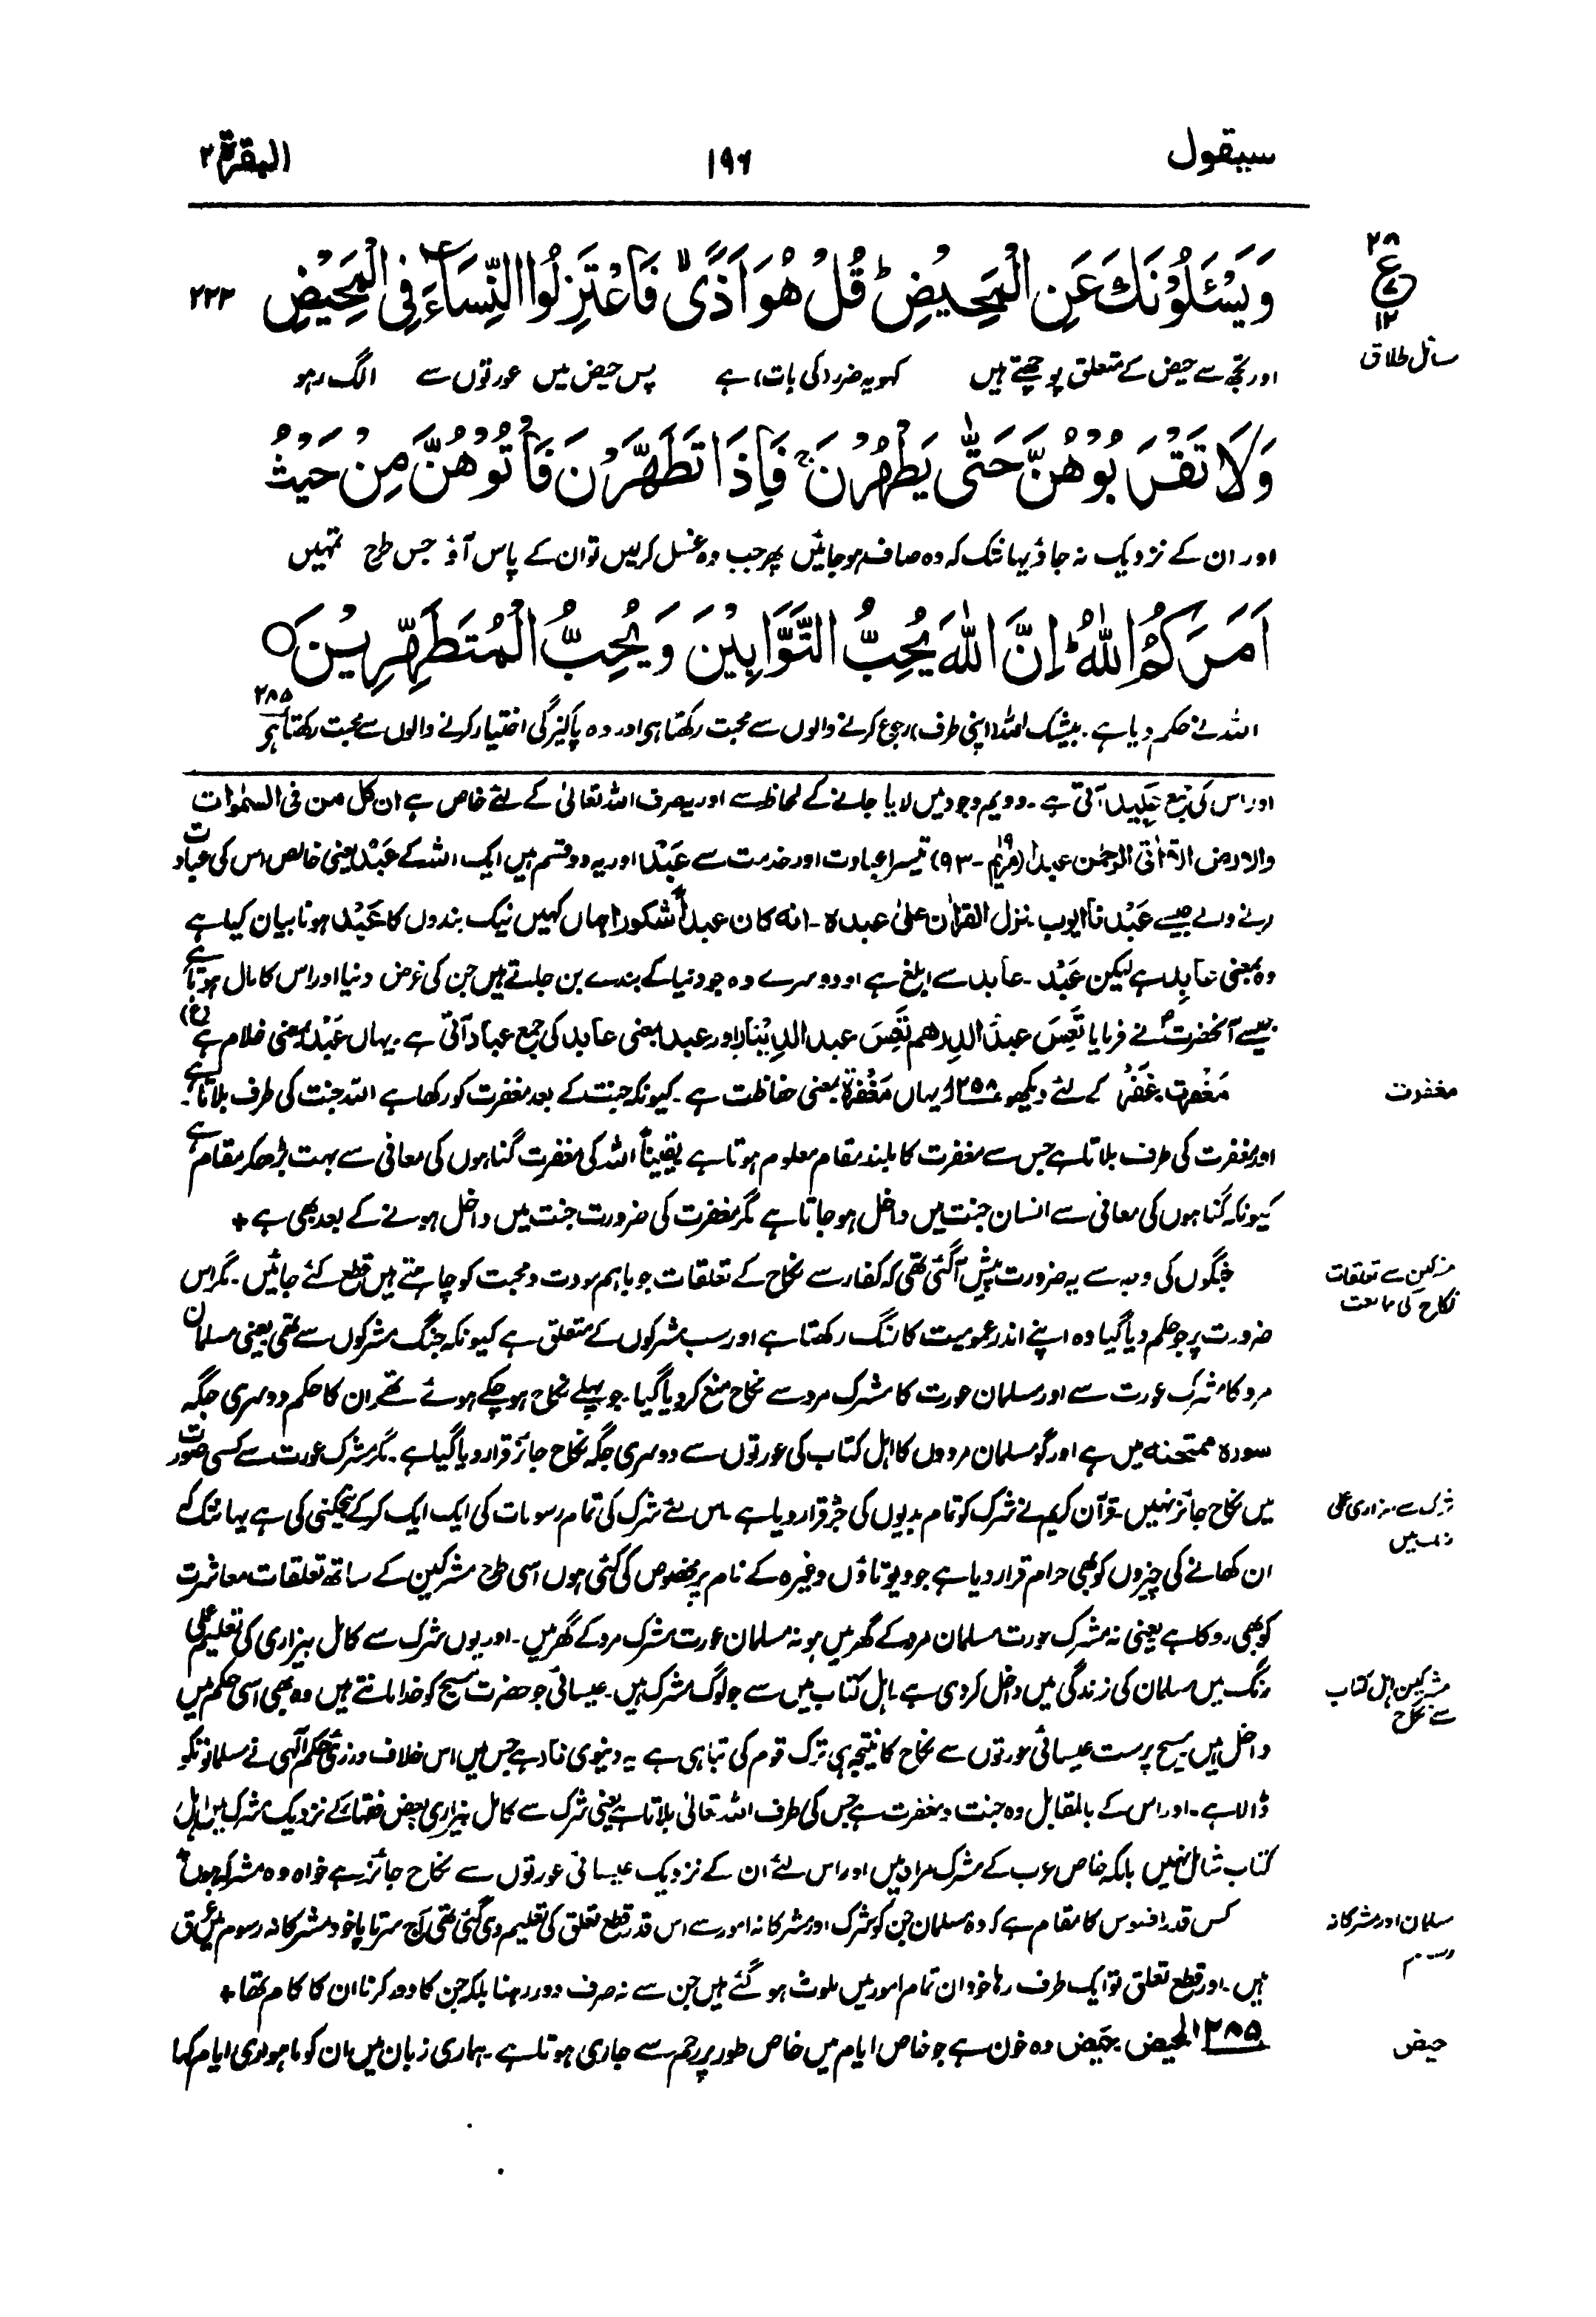 سیقول
۱۹۶
البقرۃ ۲
۲۸
ع
۱۲
وَيَسْـَٔلُوْنَكَ عَنِ الْمَحِيْضِ ؕ قُلْ هُوَ اَذًى ۙ فَاعْتَزِلُوا النِّسَآءَ فِى الْمَحِيْضِ ۲۲۲
مسائل طلاق
اور تجھ سے حیض کے متعلق پوچھتے ہیں کہو یہ ضرر (کی بات) ہے پس حیض میں عورتوں سے الگ رہو
وَلَا تَقْرَبُوْهُنَّ حَتّٰى يَطْهُرْنَ ۚ فَاِذَا تَطَهَّرْنَ فَاْتُوْهُنَّ مِنْ حَيْثُ
اور ان کے نزدیک نہ جاؤ یہانتک کہ وہ صاف ہو جائیں پھر جب وہ غسل کرلیں تو ان کے پاس آؤ جس طرح تمہیں
اَمَرَكُمُ اللّٰهُ ؕ اِنَّ اللّٰهَ يُحِبُّ التَّوَّابِيْنَ وَيُحِبُّ الْمُتَطَهِّرِيْنَ ○
اللہ نے حکم دیا ہے۔ بیشک اللہ (اپنی طرف) رجوع کرنے والوں سے محبت رکھتا ہی اور وہ پاکیزگی اختیار کرنے والوں سے محبت رکھتا ہی ۲۸۵
اور اس کی جمع عَبِیْد آتی ہے۔ دویم وجود میں لایا جانے کے لحاظ سے اور یہ صرف اللہ تعالیٰ کے لئے خاص ہے ان کل من فی السمٰوات
والارض الا اٰتی الرحمٰن عبدا (مریم ۱۹-۹۳) تیسرا عبادت اور خدمت سے عَبْد اور یہ دو قسم ہیں ایک اللہ کے عَبْد یعنی خالص اس کی عبادت
کرنے والے جیسے عَبْدَنا ایوب۔ نزل الفرقان علیٰ عبدہ۔ انه کان عبداً شکورا جہاں کہیں نیک بندوں کا عَبْد ہونا بیان کیا ہے
وہ بمعنی عابِد ہے لیکن عَبْد۔ عابد سے ابلغ ہے اور دوسرے وہ جو دنیا کے بندے بن جاتے ہیں جن کی غرض دنیا اور اس کا مال ہوتا ہے
جیسے آنحضرتؐ نے فرمایا تَعِسَ عبدُ الدرهم تَعِسَ عبد الدینار اور عبد بمعنی عابد کی جمع عباد آتی ہے۔ یہاں عَبْد بمعنی غلام ہے (غ)
مغفرت
مَغْفِرَت۔ غَفْر کے لئے دیکھو ۲۵۸ اور یہاں مَغْفِرَۃ بمعنی حفاظت ہے۔ کیونکہ جنت کے بعد مغفرت کو رکھا ہے اللہ جنت کی طرف بلاتا ہے۔
اور مغفرت کی طرف بلاتا ہے جس سے مغفرت کا بلند مقام معلوم ہوتا ہے یقیناً اللہ کی مغفرت گناہوں کی معافی سے بہت بڑھکر مقام ہے
کیونکہ گناہوں کی معافی سے انسان جنت میں داخل ہو جاتا ہے مگر مغفرت کی ضرورت جنت میں داخل ہونے کے بعد بھی ہے +
مشرکین سے تعلقات
نکاح کی ممانعت
جنگوں کی وجہ سے یہ ضرورت پیش آگئی تھی کہ کفار سے نکاح کے تعلقات جو باہم مودت و محبت کو چاہتے ہیں قطع کئے جائیں۔ مگر اس
ضرورت پر جو حکم دیا گیا وہ اپنے اندر عمومیت کا رنگ رکھتا ہے اور سب مشرکوں کے متعلق ہے کیونکہ جنگ مشرکوں سے تھی یعنی مسلمان
مرد کا مشرک عورت سے اور مسلمان عورت کا مشرک مرد سے نکاح منع کردیا گیا۔ جو پہلے نکاح ہوچکے ہوئے تھے ان کا حکم دوسری جگہ
سورۃ ممتحنہ میں ہے اور گو مسلمان مردوں کا اہل کتاب کی عورتوں سے دوسری جگہ نکاح جائز قرار دیا گیا ہے۔ مگر مشرک عورت سے کسی صورت
شرک سے بیزاری عملی
رنگ میں
میں نکاح جائز نہیں۔ قرآن کریم نے شرک کو تمام بدیوں کی جڑ قرار دیا ہے۔ اس لئے شرک کی تمام رسومات کی ایک ایک کرکے بیخکنی کی ہے یہانتک کہ
ان کھانے کی چیزوں کو بھی حرام قرار دیا ہے جو دیوتاؤں وغیرہ کے نام پر مخصوص کی گئی ہوں اسی طرح مشرکین کے ساتھ تعلقات معاشرت
کو بھی روکا ہے یعنی نہ مشرک عورت مسلمان مرد کے گھر میں ہو نہ مسلمان عورت مشرک مرد کے گھر میں۔ اور یوں شرک سے کامل بیزاری کی تعلیم عملی
مشرکین اہل کتاب
سے نکاح
رنگ میں مسلمان کی زندگی میں داخل کردی ہے۔ اہل کتاب میں سے جو لوگ مشرک ہیں۔ عیسائی جو حضرت مسیح کو خدا مانتے ہیں وہ بھی اسی حکم میں
داخل ہیں مسیح پرست عیسائی عورتوں سے نکاح کا نتیجہ ہی ترک قوم کی تباہی ہے یہ دنیوی نار ہے جس میں اس خلاف ورزی حکم الٰہی نے مسلمانونکو
ڈالا ہے۔ اور اس کے بالمقابل وہ جنت و مغفرت ہے جس کی طرف اللہ تعالیٰ بلاتا ہے یعنی شرک سے کامل بیزاری بعض فقہاء کے نزدیک مشرک میں اہل
کتاب شامل نہیں بلکہ خاص عرب کے مشرک مراد ہیں اور اس لئے ان کے نزدیک عیسائی عورتوں سے نکاح جائز ہے خواہ وہ مشرکہ ہوں
مسلمان اور مشرکانہ
رسوم
کس قدر افسوس کا مقام ہے کہ وہ مسلمان جن کو شرک اور مشرکانہ امور سے اس قدر قطع تعلق کی تعلیم دی گئی تھی آج سرتا پا خود مشرکانہ رسوم میں غرق
ہیں۔ اور قطع تعلق تو ایک طرف رہا خود ان تمام امور میں ملوث ہو گئے ہیں جن سے نہ صرف دور رہنا بلکہ جن کا دور کرنا ان کا کام تھا +
حیض
۲۸۵ المحیض۔ حَیْض وہ خون ہے جو خاص ایام میں خاص طور پر رحم سے جاری ہوتا ہے۔ ہماری زبان میں ان کو ماہواری ایام کہا